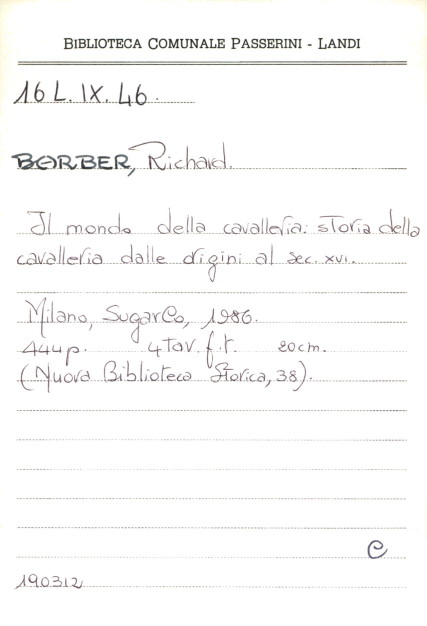 BIBLIOTECA COMUNALE PASSERINI - LANDI
16 L. IX. 46.
BARBER, Richard.
Il mondo della cavalleria: storia della
cavalleria dalle origini al sec. XVI.
Milano, SugarCo, 1986.
444 p. 4 tav. f.t. 20 cm.
(Nuova Biblioteca Storica, 38).
C
190312